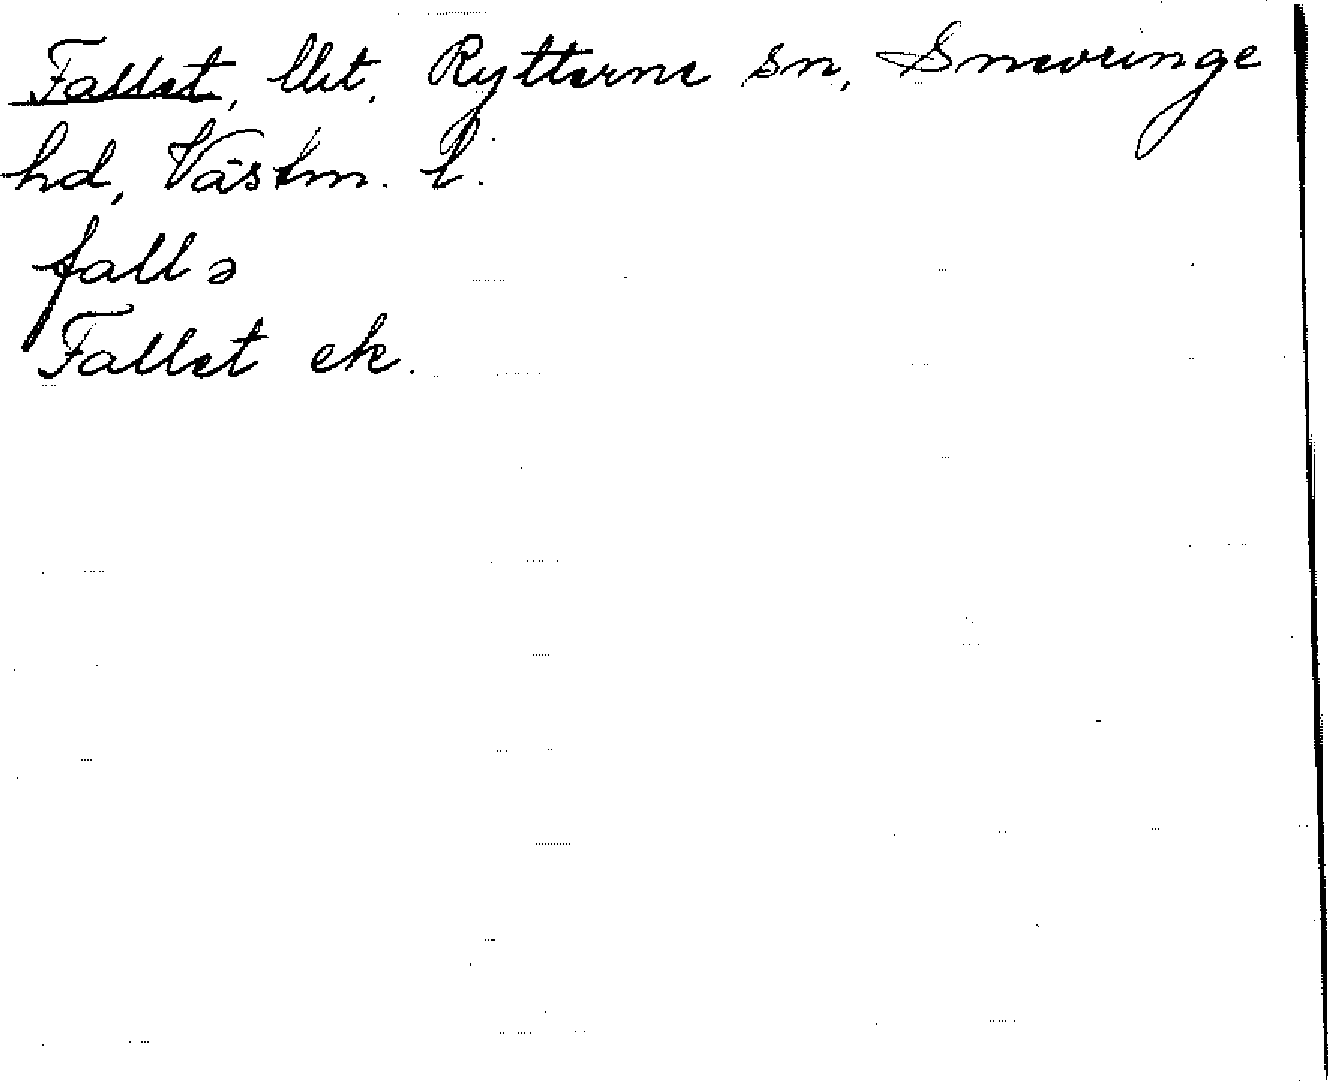 Fallet, llet. Rytterne sn, Snevringe
hd, Västm. l.
fallə
Fallet ek.